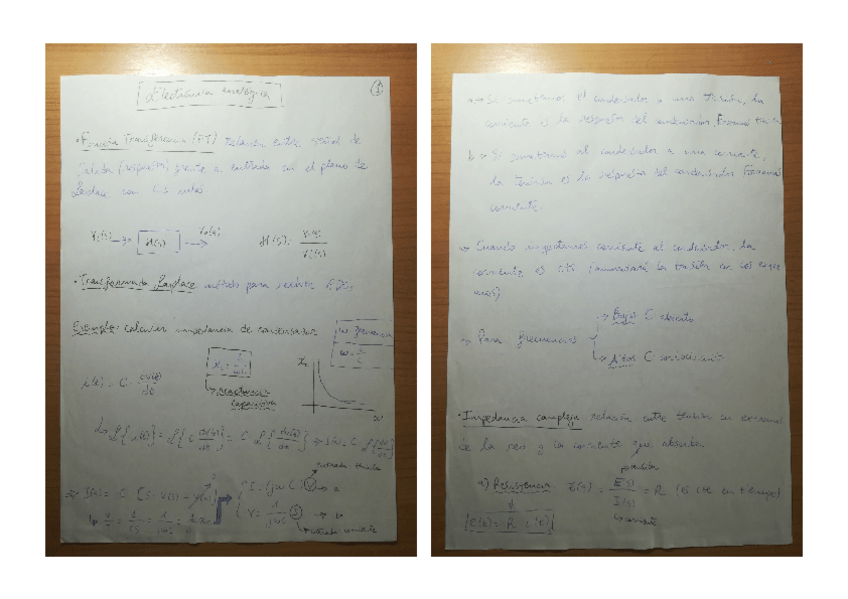 Electrónica analógica
1
• Función Transferencia (FT) relación entre señal de
salida (respuesta) frente a entrada en el plano de
Laplace con CIs nulas
Vi(s) → H(s) → Vo(s) H(s) = Vo(s)/Vi(s)
• Transformada Laplace método para resolver EDOs
Ejemplo: calcular impedancia de condensador
ω frecuencia
i(t) = C · dv(t)/dt
reactancia
capacitiva
ω
L{i(t)} = L{C dv(t)/dt} = C L{dv(t)/dt}
entrada tensión
⇒ I(s) = C [S·V(s) - v(0)]
I = (jωC) V → a
V = 1/jωC I → b
entrada corriente
a → Si sometemos el condensador a una tensión, la
corriente es la respuesta del condensador
b → Si sometemos al condensador a una corriente,
la tensión es la respuesta del condensador
corriente.
→ Cuando inyectamos corriente al condensador, la
corriente es cte (aumentará la tensión con
→ Para frecuencias
→ Bajas C abierto
→ Altas C cortocircuito
• Impedancia compleja relación entre tensión en
de la red y la corriente que absorbe.
a) Resistencia Z(s) = E(s)/I(s) = R (es cte en tiempo)
e(t) = R i(t)